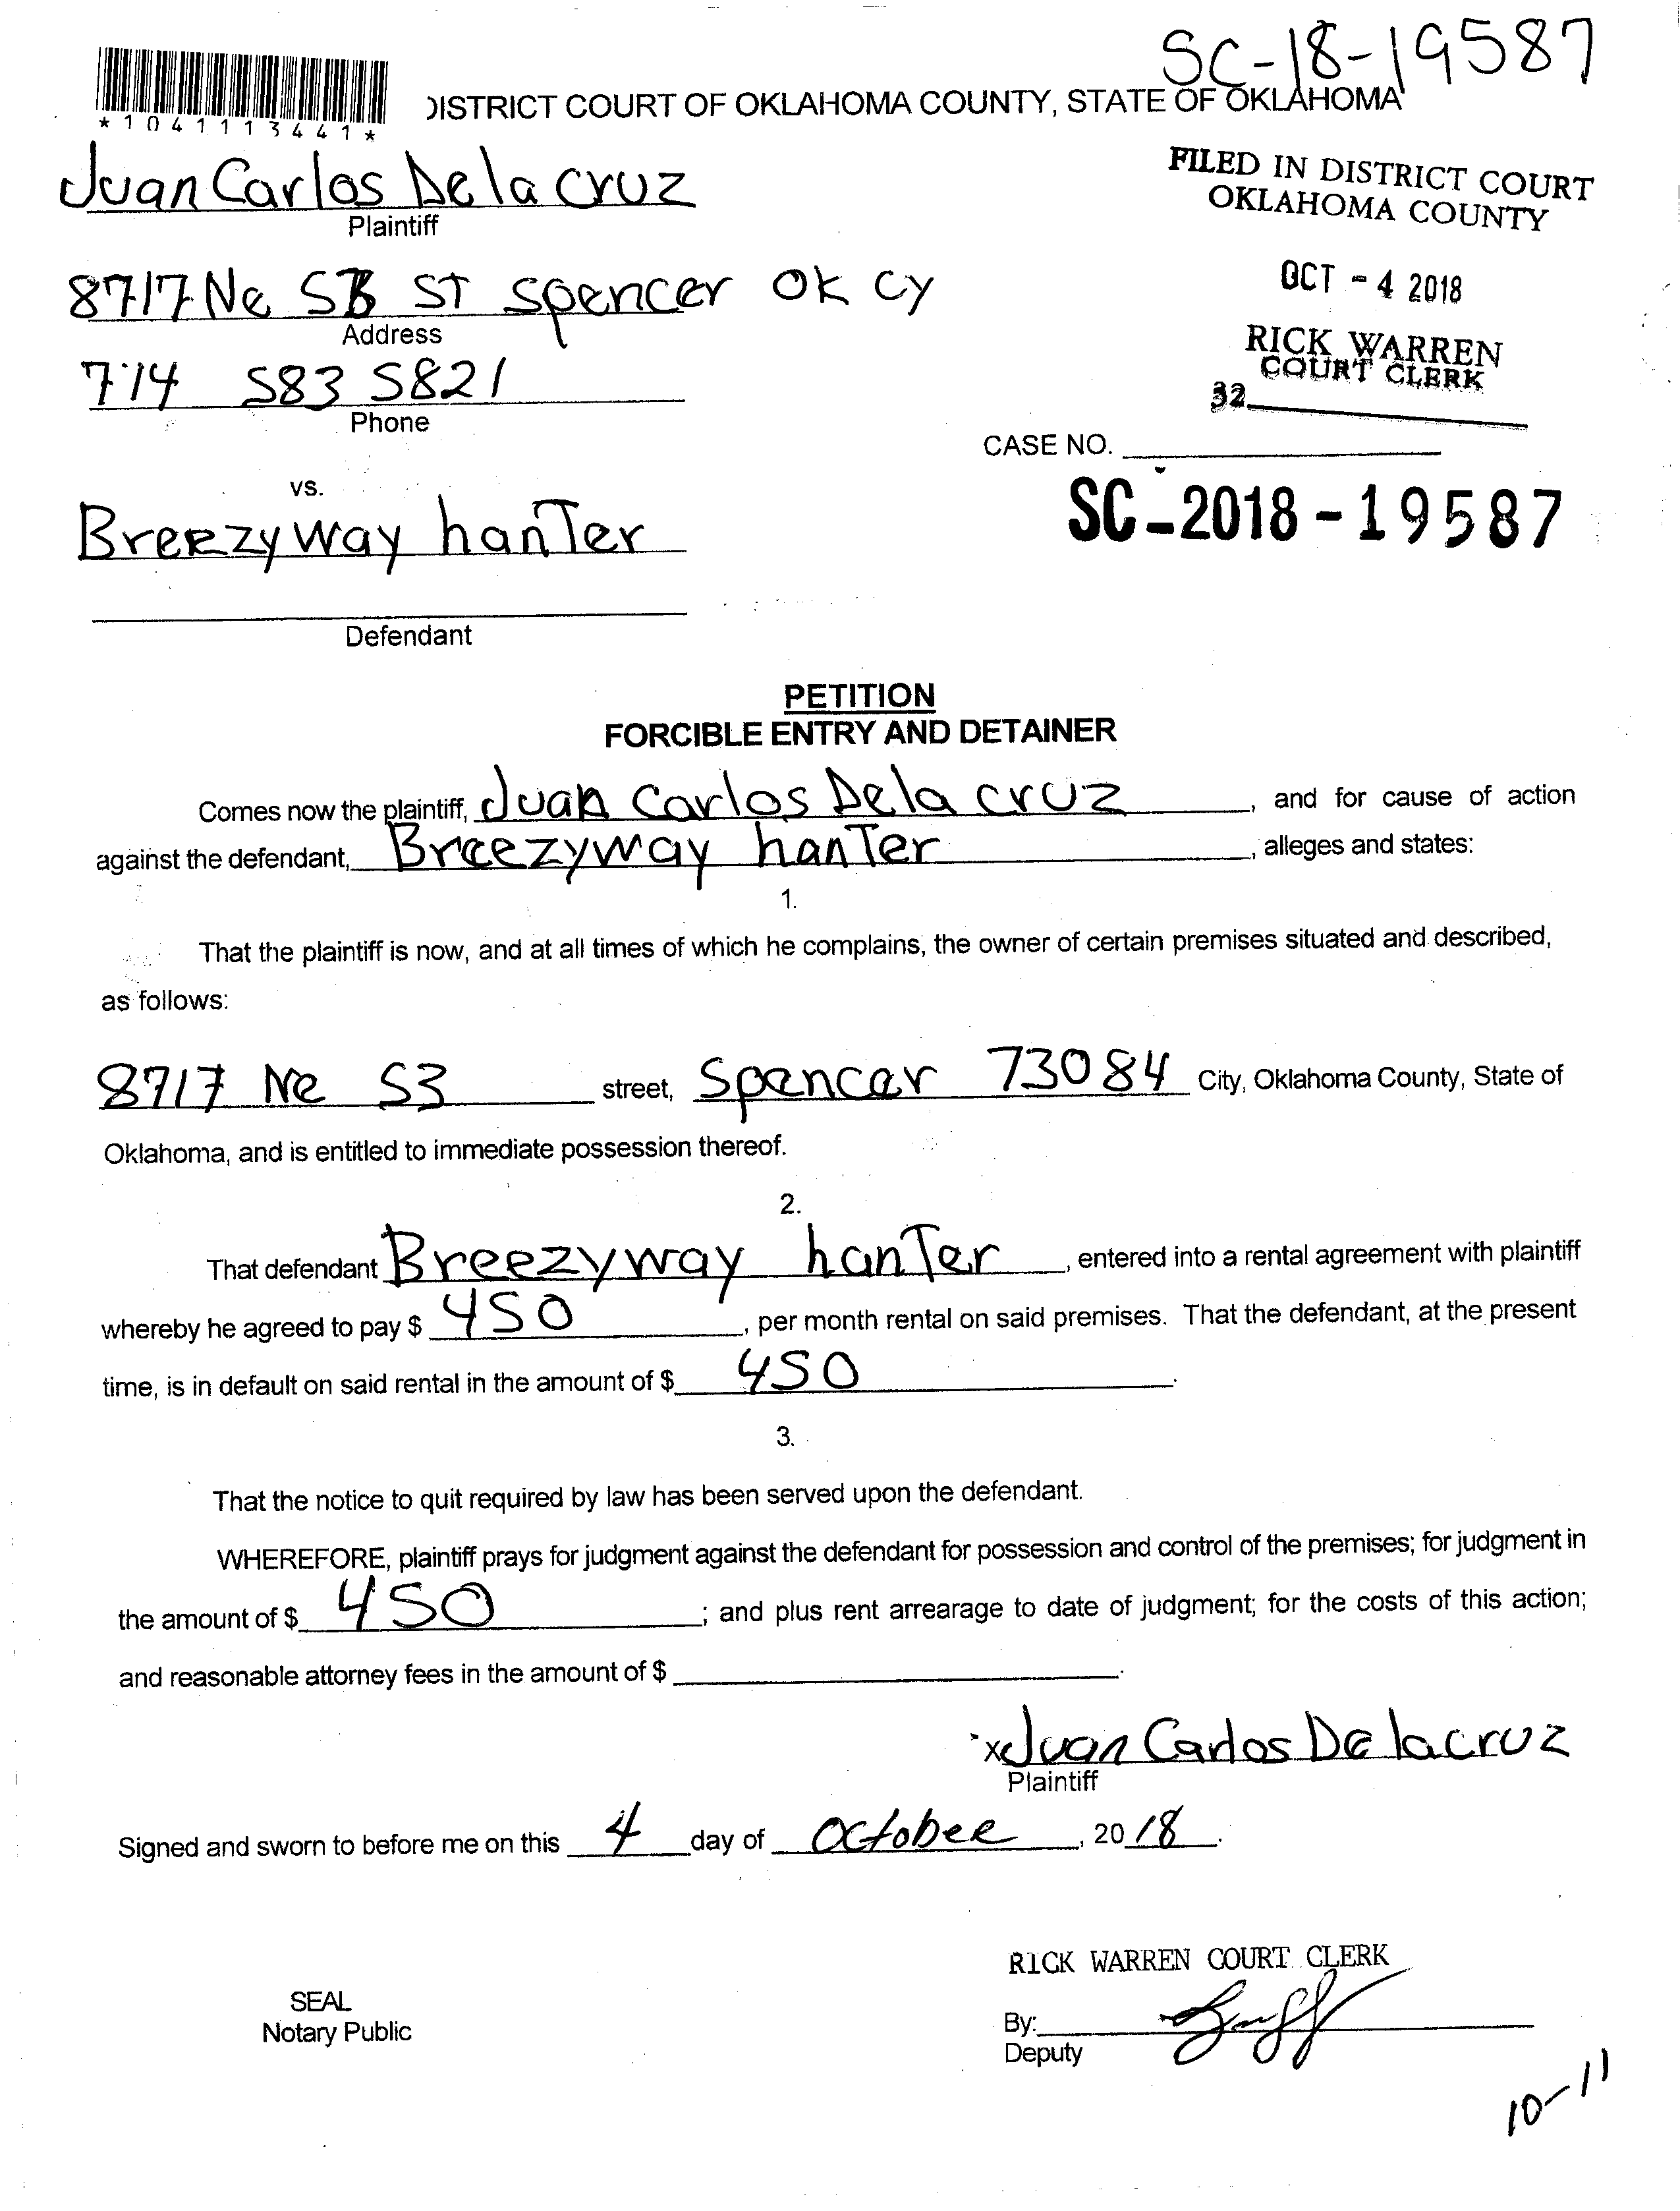 SC-18-19587
*1041113441*
DISTRICT COURT OF OKLAHOMA COUNTY, STATE OF OKLAHOMA
Juan Carlos De la cruz
Plaintiff
FILED IN DISTRICT COURT
OKLAHOMA COUNTY
8717 Ne 53 ST spencer ok cy
Address
OCT - 4 2018
RICK WARREN
COURT CLERK
32
714 583 5821
Phone
CASE NO.
SC-2018-19587
vs.
Breezyway hanTer
Defendant
PETITION
FORCIBLE ENTRY AND DETAINER
Comes now the plaintiff, Juan Carlos De la cruz, and for cause of action
against the defendant, Breezyway hanTer, alleges and states:
1.
That the plaintiff is now, and at all times of which he complains, the owner of certain premises situated and described,
as follows:
8717 Ne 53 street, Spencer 73084 City, Oklahoma County, State of
Oklahoma, and is entitled to immediate possession thereof.
2.
That defendant Breezyway hanTer, entered into a rental agreement with plaintiff
whereby he agreed to pay $ 450, per month rental on said premises. That the defendant, at the present
time, is in default on said rental in the amount of $ 450.
3.
That the notice to quit required by law has been served upon the defendant.
WHEREFORE, plaintiff prays for judgment against the defendant for possession and control of the premises; for judgment in
the amount of $ 450; and plus rent arrearage to date of judgment; for the costs of this action;
and reasonable attorney fees in the amount of $.
x Juan Carlos De la cruz
Plaintiff
Signed and sworn to before me on this 4 day of October, 2018.
RICK WARREN COURT CLERK
SEAL
Notary Public
By:
Deputy
10-11